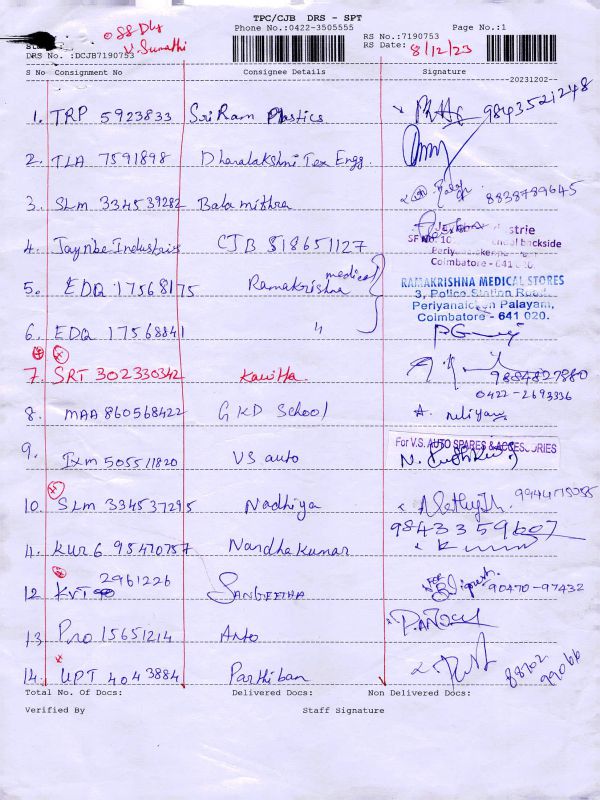 TPC/CJB DRS - SPT
Phone No.:0422-3505555 Page No.:1
RS No.:7190753
OSS Dly
RS Date: 8/12/23
DRS No. :DCJB7190753
S No Consignment No Consignee Details Signature
20231202
1. TRP 5923833 Sri Ram Plastics 9843521248
2. TLA 7591898 Dhanalakshmi Tex Engg.
3. SLM 334539282 Balamithra 8838789645
4. Jaynbe Industries CJB 518651127
SF No. 10 backside
Coimbatore - 641
5. EDQ 17568175 Ramakrishna medical
RAMAKRISHNA MEDICAL STORES
3, Police Station Road
Periyanaicken Palayam,
Coimbatore - 641 020.
6. EDQ 17568841 "
7. SRT 302330342 Kavitha 9884827880
0422-2693336
8. MAA 860568422 GKD School
For V.S. AUTO SPARES & ACCESSORIES
9. IXM 505511820 VS auto
10. SLM 334537295 Nadhiya
9843359607
11. KUR6 95470757 Nandhakumar
12 KVT 2961226 SANGEETHA 90470-97432
13. PRO 15651214 Anto
14. UPT 4043884 Parthiban
Total No. Of Docs: Delivered Docs: Non Delivered Docs:
Verified By Staff Signature